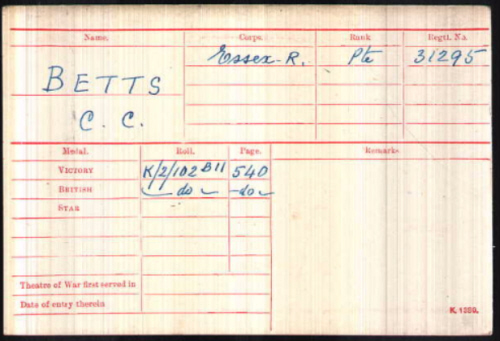 Name. Corps. Rank Regtl. No.
Essex. R. Pte 31295
BETTS
C. C.
Medal. Roll. Page. Remarks.
VICTORY K/2/102 B11 540
BRITISH do do
STAR
Theatre of War first served in
Date of entry therein
K. 1380.